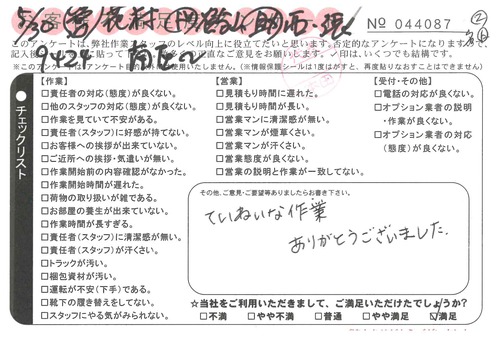 № 044087
このアンケートは、弊社作業スタッフのレベル向上に役立てたいと思います。否定的なアンケートになりますので、
※このアンケートは
チェックリスト
【作業】
□責任者の対応(態度)が良くない。
□他のスタッフの対応(態度)が良くない。
□作業を見ていて不安がある。
□責任者(スタッフ)に好感が持てない。
□お客様への挨拶が出来ていない。
□ご近所への挨拶・気遣いが無い。
□作業開始前の内容確認がなかった。
□作業開始時間が遅れた。
□荷物の取り扱いが雑である。
□お部屋の養生が出来ていない。
□作業時間が長すぎる。
□責任者(スタッフ)に清潔感が無い。
□責任者(スタッフ)が汗くさい。
□トラックが汚い。
□梱包資材が汚い。
□運転が不安(下手)である。
□靴下の履き替えをしてない。
□スタッフにやる気がみられない。
【営業】
□見積もり時間に遅れた。
□見積もり時間が長い。
□営業マンに清潔感が無い。
□営業マンが煙草くさい。
□営業マンが汗くさい。
□営業態度が良くない。
□営業の説明と作業が一致してない。
【受付・その他】
□電話の対応が良くない。
□オプション業者の説明
・作業が良くない。
□オプション業者の対応
(態度)が良くない。
その他、ご意見・ご要望等ありましたらお書き下さい。
ていねいな作業
ありがとうございました.
☆当社をご利用いただきまして、ご満足いただけたでしょうか?
□不満 □やや不満 □普通 □やや満足 ☑満足